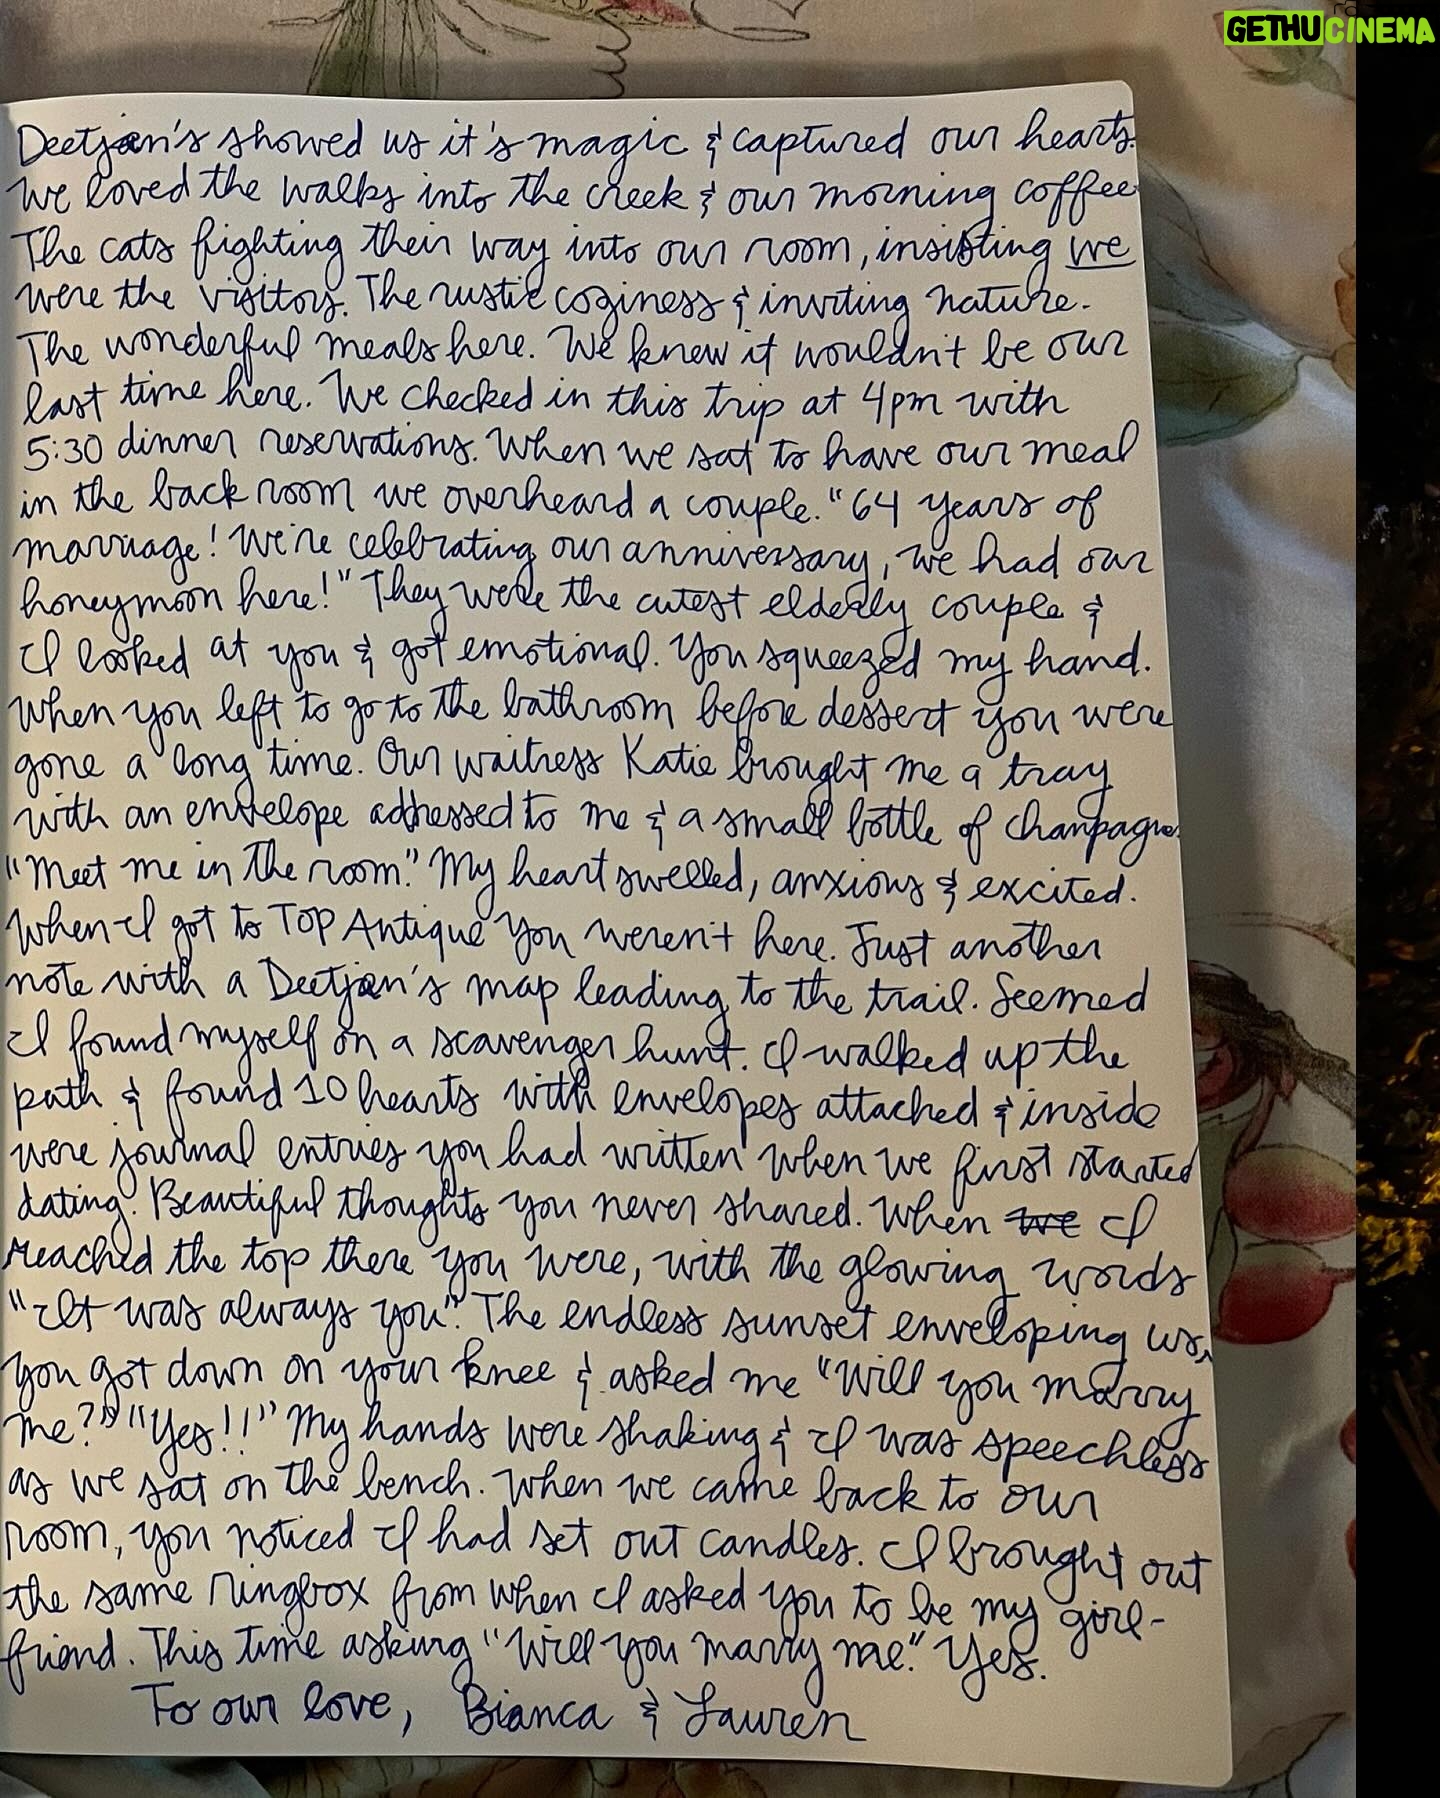 GETHU CINEMA
Deetjen's showed us it's magic & captured our hearts.
We loved the walks into the creek & our morning coffee
The cats fighting their way into our room, insisting we
were the visitors. The rustic coziness & inviting nature.
The wonderful meals here. We knew it wouldn't be our
last time here. We checked in this trip at 4pm with
5:30 dinner reservations. When we sat to have our meal
in the back room we overheard a couple. "64 years of
marriage! We're celebrating our anniversary, we had our
honeymoon here!" They were the cutest elderly couple &
I looked at you & got emotional. You squeezed my hand.
When you left to go to the bathroom before dessert you were
gone a long time. Our waitress Katie brought me a tray
with an envelope addressed to me & a small bottle of champagne.
"Meet me in the room." My heart swelled, anxious & excited.
When I got to TOP Antique you weren't here. Just another
note with a Deetjen's map leading to the trail. Seemed
I found myself on a scavenger hunt. I walked up the
path & found 10 hearts with envelopes attached & inside
were journal entries you had written when we first started
dating. Beautiful thoughts you never shared. When we I
reached the top there you were, with the glowing words
"It was always you". The endless sunset enveloping us,
you got down on your knee & asked me "Will you marry
me?" "Yes!!" My hands were shaking & I was speechless
as we sat on the bench. When we came back to our
room, you noticed I had set out candles. I brought out
the same ringbox from when I asked you to be my girl-
friend. This time asking "Will you marry me." Yes.
To our love, Bianca & Lauren